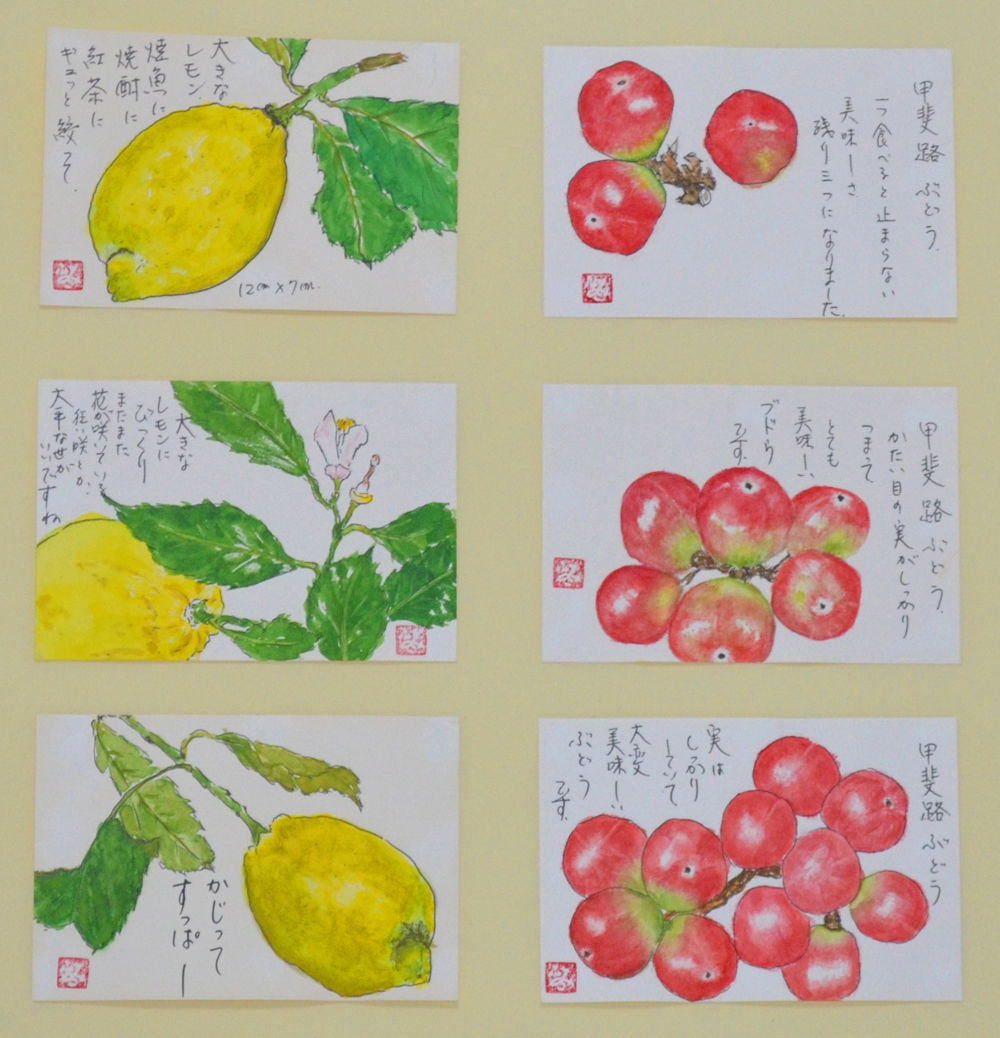 大きな
レモン
焼魚に
焼酎に
紅茶に
ギュっと絞って.
12cm×7cm.
甲斐路ぶどう.
一つ食べると止まらない
美味しさ
残り三つになりました.
大きな
レモンに
びっくり
またまた
花が咲いている
狂い咲とか.
大平な世が
いいですね
甲斐路ぶどう.
かたい目の実がしっかり
つまって
とても
美味しい
ブドウ
です.
かじって
すっぱー
甲斐路ぶどう
実は
しっかり
していて
大変
美味しい
ぶどう
です.